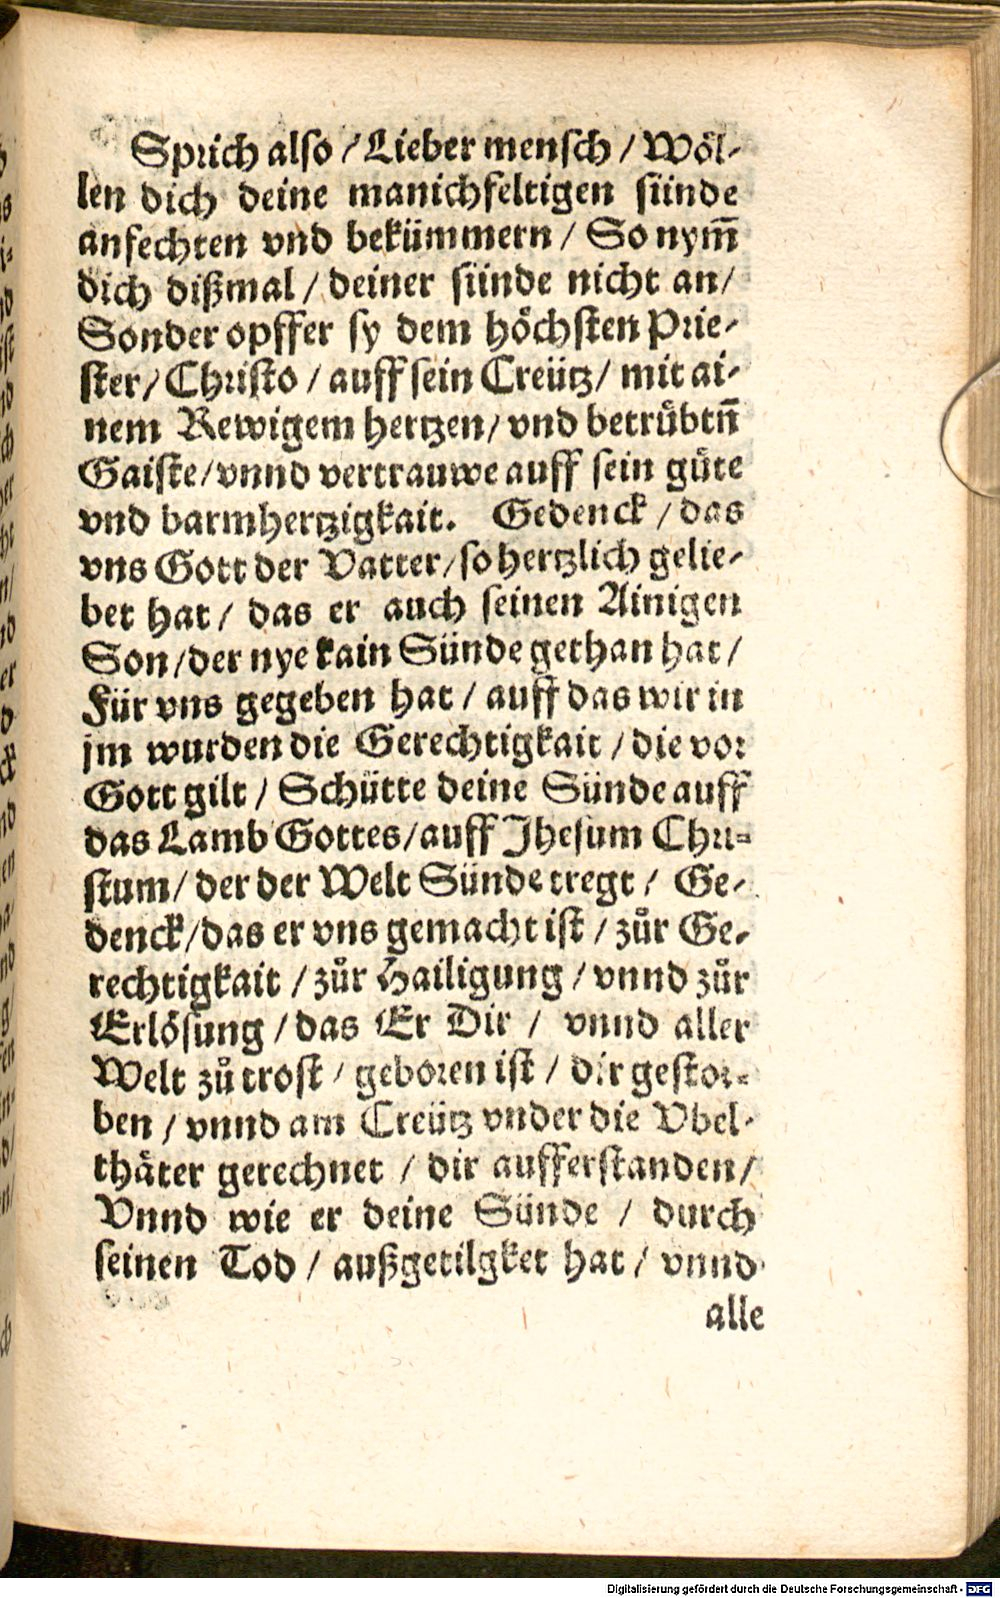 Sprich also / Lieber mensch / Wöl-
len dich deine manichfeltigen sünde
anfechten vnd bekümmern / So nym̃
dich dißmal / deiner sünde nicht an /
Sonder opffer sy dem höchsten Prie-
ster / Christo / auff sein Creütz / mit ai-
nem Rewigem hertzen / vnd betrůbtñ
Gaiste / vnnd vertrauwe auff sein gůte
vnd barmhertzigkait. Gedenck / das
vns Gott der Vatter / so hertzlich gelie-
bet hat / das er auch seinen Ainigen
Son / der nye kain Sünde gethan hat /
Für vns gegeben hat / auff das wir in
jm wurden die Gerechtigkait / die vor
Gott gilt / Schütte deine Sünde auff
das Lamb Gottes / auff Jhesum Chri-
stum / der der Welt Sünde tregt / Ge-
denck / das er vns gemacht ist / zůr Ge-
rechtigkait / zůr Hailigung / vnnd zůr
Erlösung / das Er Dir / vnnd aller
Welt zů trost / geboren ist / dir gestor-
ben / vnnd am Creütz vnder die Vbel-
thäter gerechnet / dir aufferstanden /
Vnnd wie er deine Sünde / durch
seinen Tod / außgetilgket hat / vnnd
alle
Digitalisierung gefördert durch die Deutsche Forschungsgemeinschaft - DFG